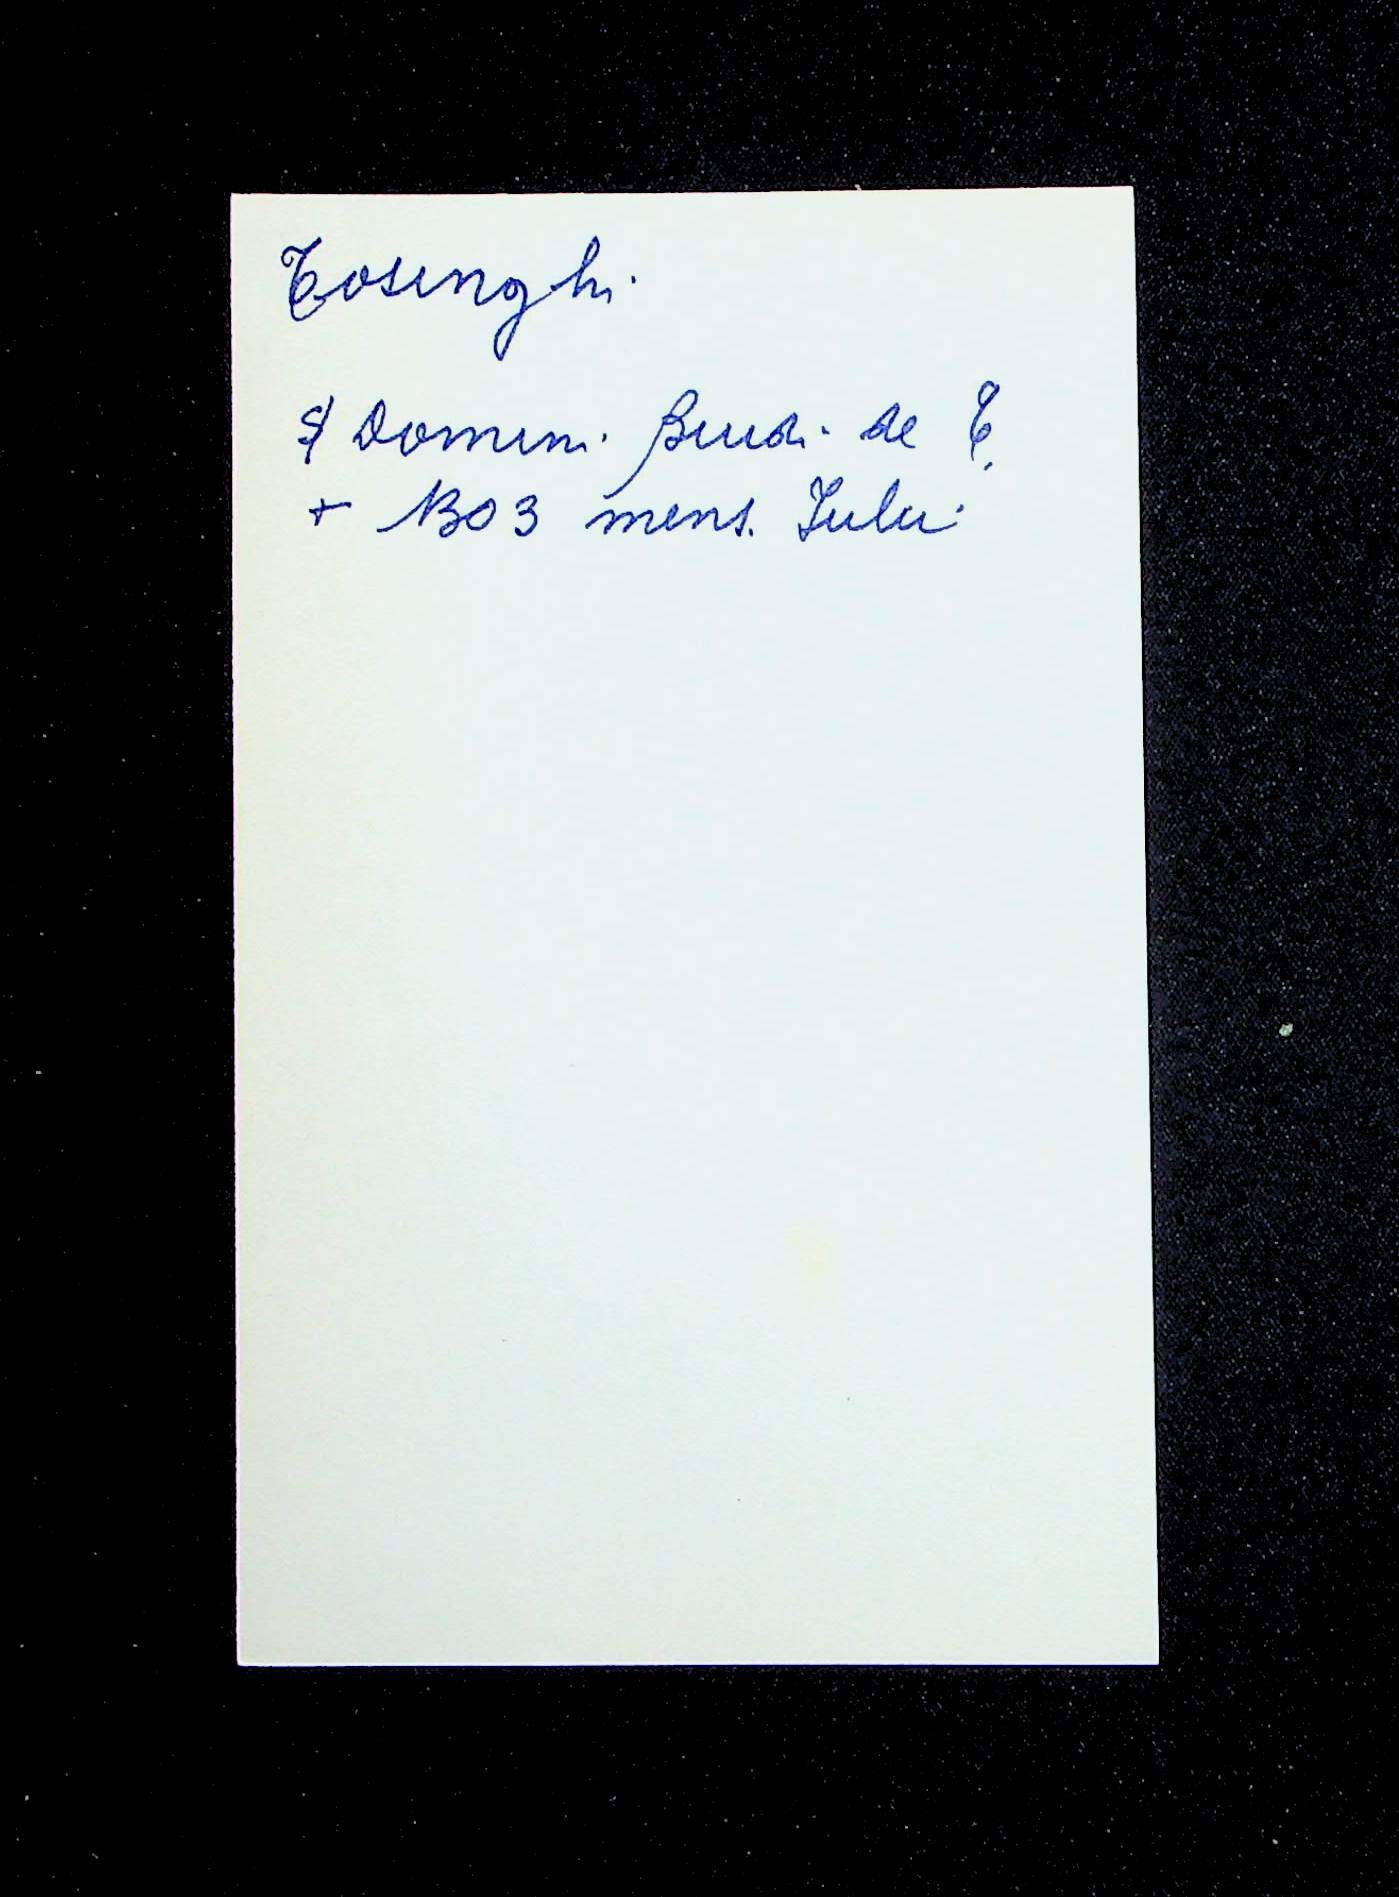 Tosinghi
S/ Domini Bindi de T.
+ 1303 mens. Iulii